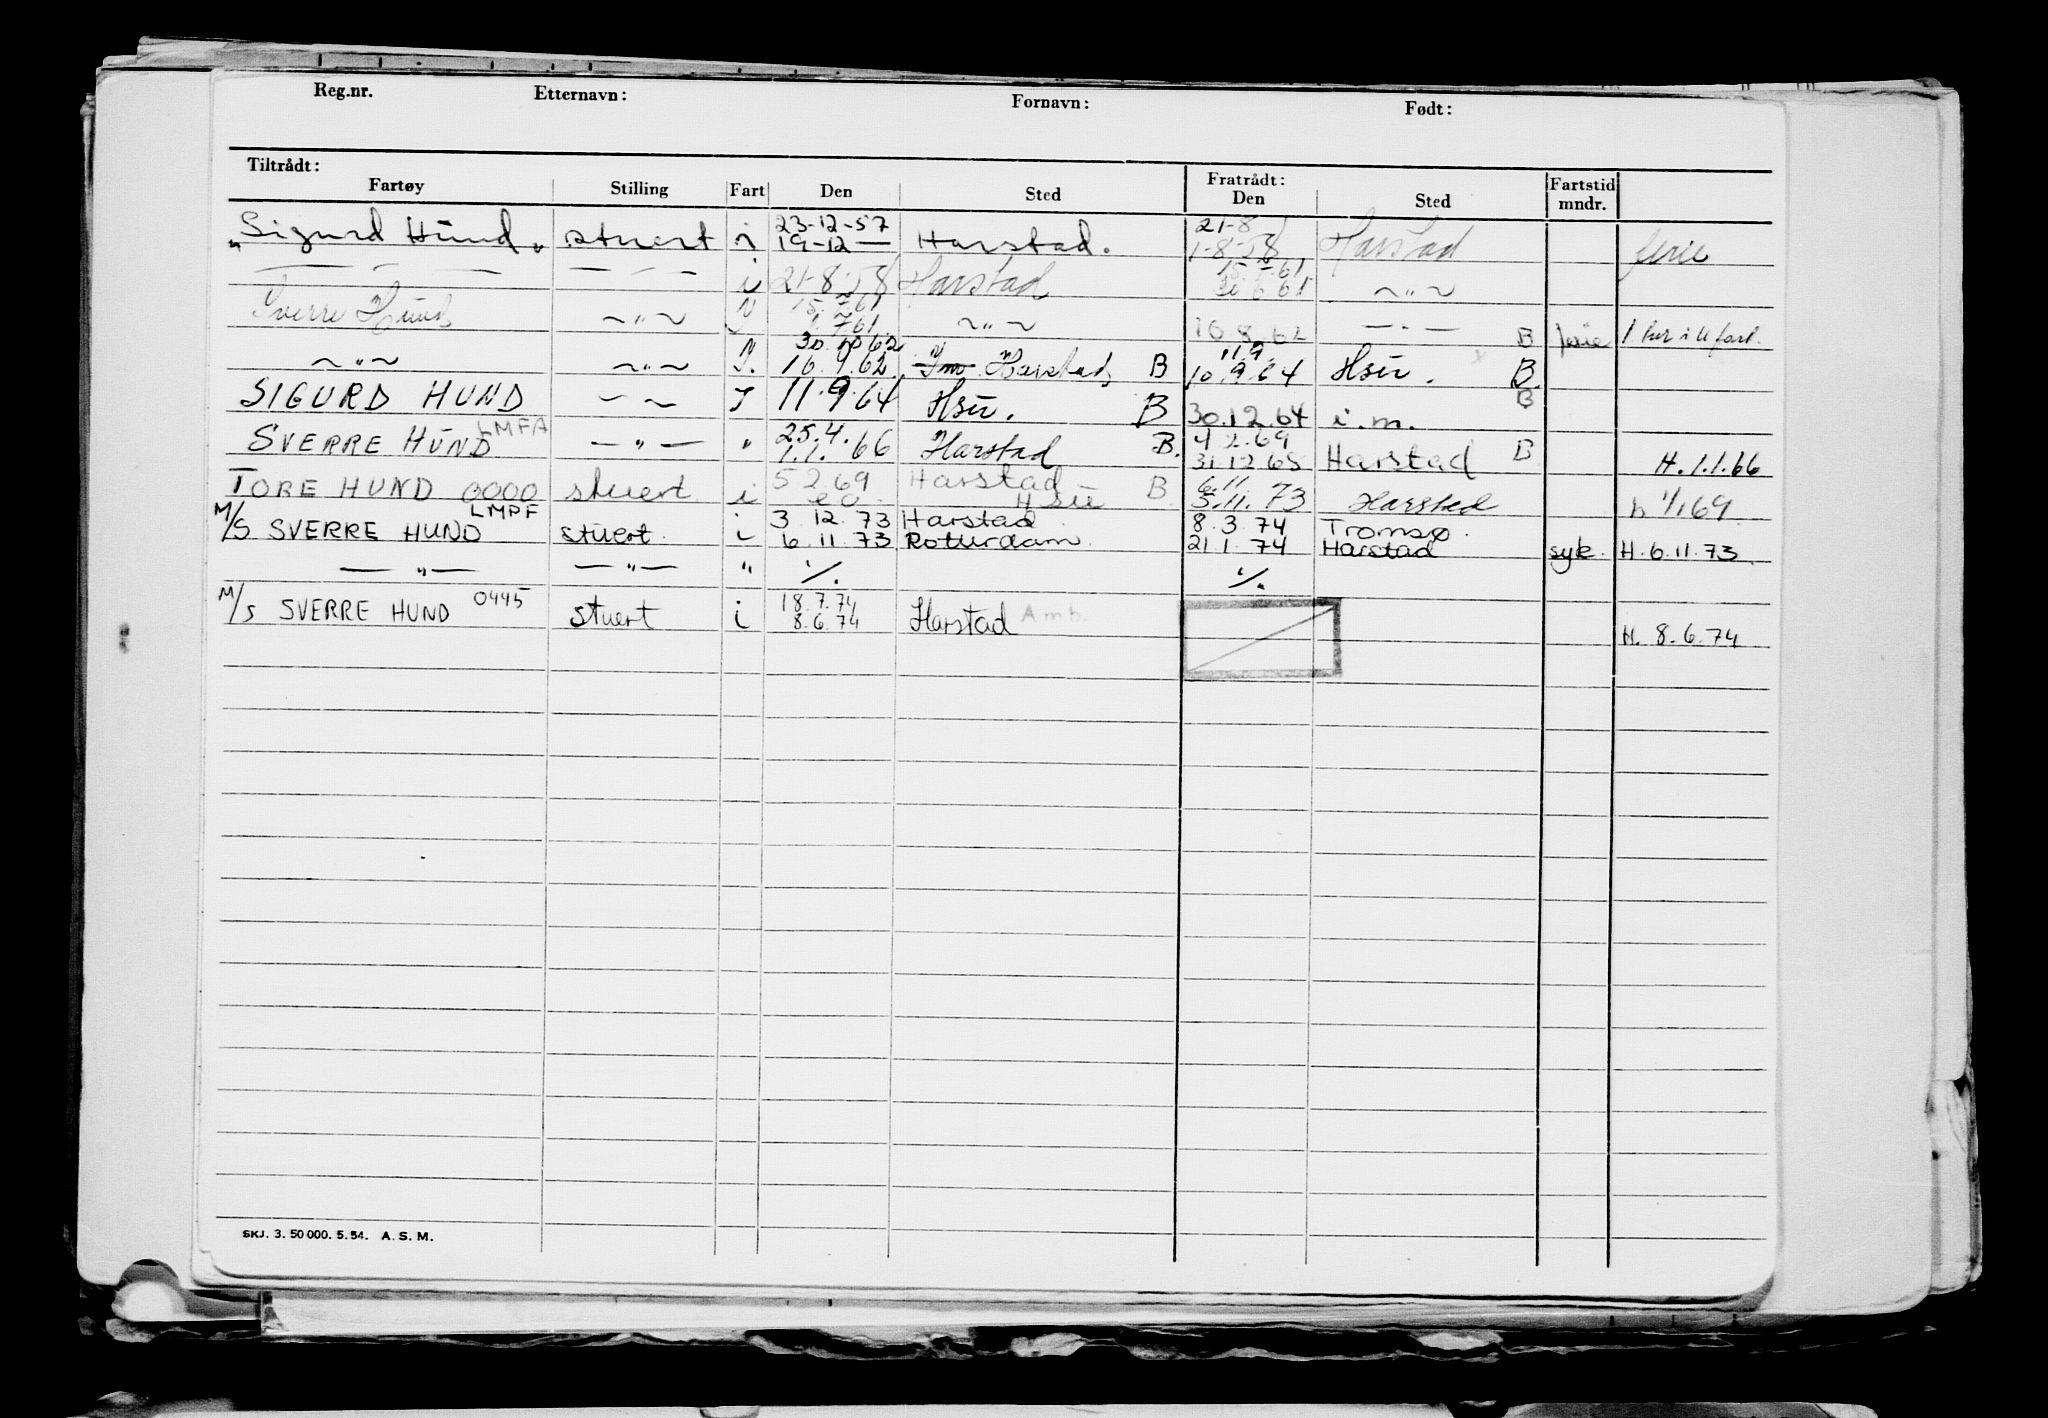 Reg.nr. Etternavn: Fornavn: Født:
Tiltrådt: Fratrådt:
Fartøy Stilling Fart Den Sted Den Sted Fartstid mndr.
23-12-57 21-8
"Sigurd Hund" stuert n 19-12 — Harstad. 1-8-58 Harstad ferie
15. 61
— - — — - — i 21-8-58 Harstad 61 ~ " ~
15. 7 61
Sverre Hund ~ " ~ N 1 7 61. ~ " ~ 16 8 62 — " — B ferie 1
30. 10 62 11.9.
~ " ~ ~ " ~ N 16.9.62. Harstad, B 10.9.64 Hsu. B.
SIGURD HUND ~ ~ I 11.9.64 Hsu. B 30.12.64 i.m. B
LMFA 25.4. 4 2.69
SVERRE HUND — " — " 1.1. 66 Harstad B. 31.12 68 Harstad B H.1.1.66
5 2 69 Harstad 6.11.
TORE HUND 0000 stuert i Hsu B 5.11.73 Harstad h 1/1 69.
LMPF 3.12.73 Harstad 8.3.74 Tromsø.
M/S SVERRE HUND stuert. i 6.11.73 Rotterdam. 21.1.74 Harstad syk. H.6.11.73.
— " — — " — " ·/. ·/.
18.7.74
M/S SVERRE HUND 0445 stuert i 8.6.74 Harstad Amb. H. 8.6.74
SKJ. 3. 50 000. 5. 54. A. S. M.